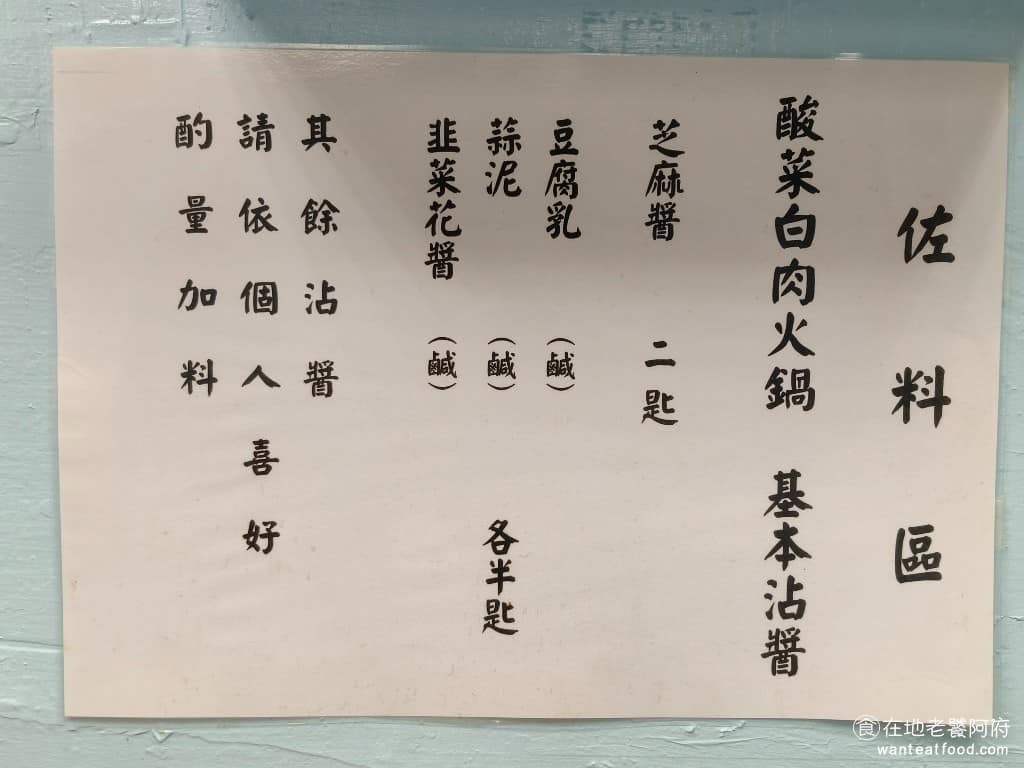 佐料區
酸菜白肉火鍋 基本沾醬
芝麻醬 二匙
豆腐乳 (鹹)
蒜泥 (鹹) 各半匙
韭菜花醬 (鹹)
其餘沾醬
請依個人喜好
酌量加料
食在地老饕阿府
wanteatfood.com